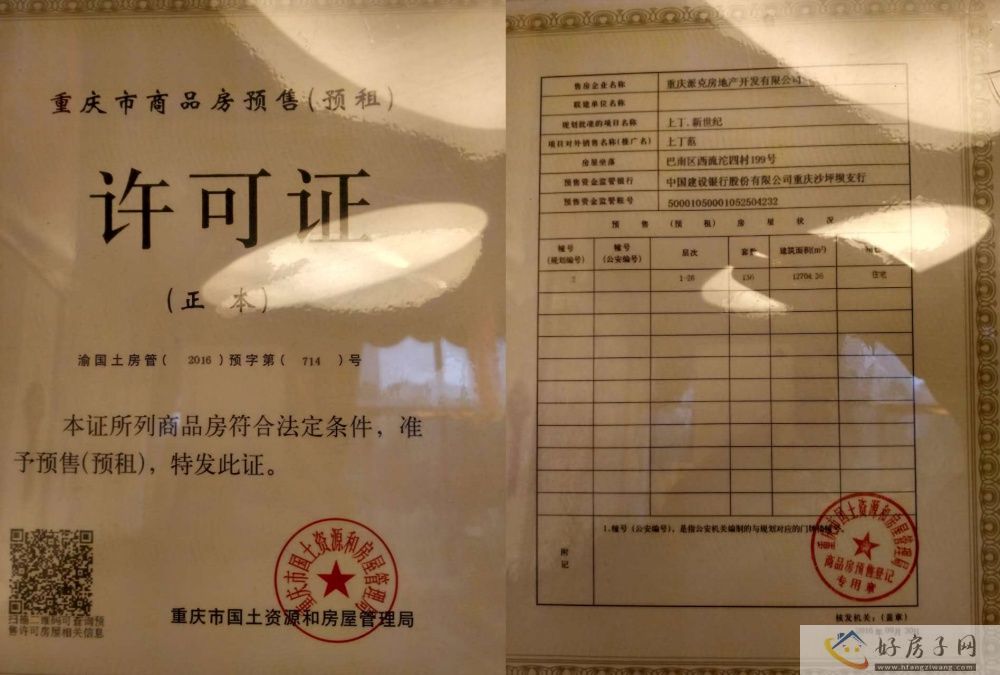 重庆市商品房预售(预租)
许可证
(正本)
渝国土房管( 2016 )预字第( 714 )号
本证所列商品房符合法定条件，准
予预售(预租)，特发此证。
扫描二维码可查询预
售许可房屋相关信息
重庆市国土资源和房屋管理局
重庆市国土资源和房屋管理局
售房企业名称 重庆派克房地产开发有限公司
联建单位名称
规划批准的项目名称 上丁.新世纪
项目对外销售名称(推广名) 上丁.逅
房屋坐落 巴南区西流沱四村199号
预售资金监管银行 中国建设银行股份有限公司重庆沙坪坝支行
预售资金监管账号 50001050001052504232
预售(预租)房屋状况
幢号(规划编号) 幢号(公安编号) 层次 套数 建筑面积(m²)
2 1-26 130 12704.36 住宅
附记
1.幢号(公安编号)，是指公安机关编制的与规划对应的门牌幢号
重庆市国土资源和房屋管理局
商品房预售登记
专用章
核发机关：(盖章)
好房子网
www.hfangziwang.com